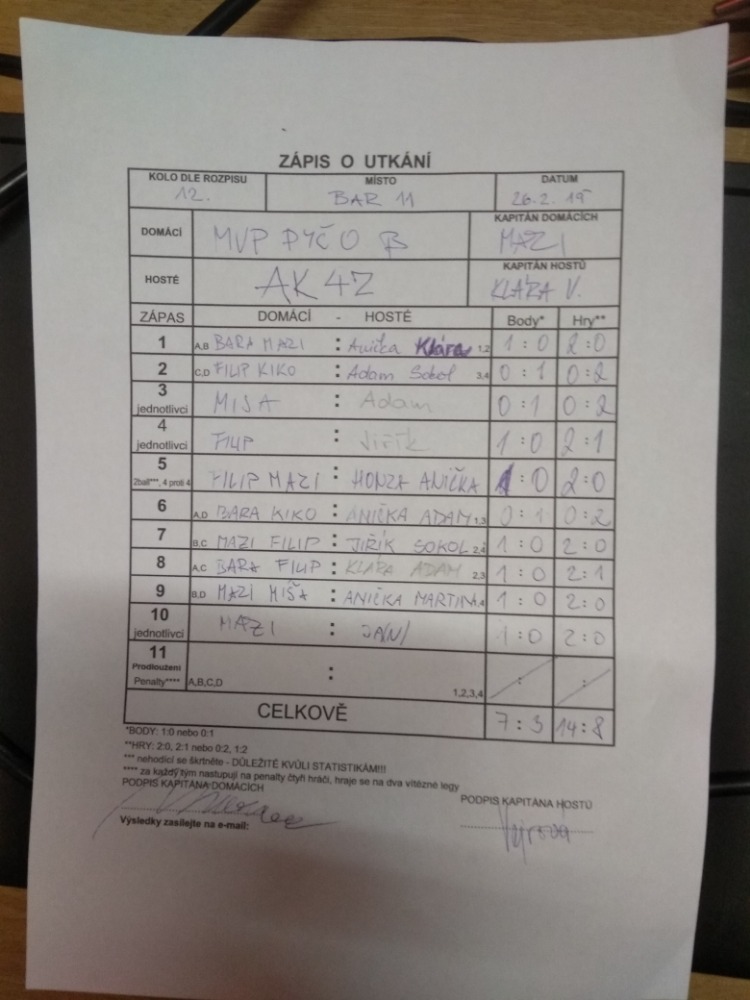 ZÁPIS O UTKÁNÍ
KOLO DLE ROZPISU MÍSTO DATUM
12. BAR 11 26.2. 19
DOMÁCÍ MVP PYČO B KAPITÁN DOMÁCÍCH MAZI
HOSTÉ AK 47 KAPITÁN HOSTŮ KLÁRA V.
ZÁPAS DOMÁCÍ - HOSTÉ Body* Hry**
1 A,B BARA MAZI : Anička Klára 1,2 1:0 2:0
2 C,D FILIP KIKO : Adam Sokol 3,4 0:1 0:2
3 jednotlivci MISA : Adam 0:1 0:2
4 jednotlivci FILIP : Jiřík 1:0 2:1
5 2ball***, 4 proti 4 FILIP MAZI : HONZA ANIČKA 1:0 2:0
6 A,D BARA KIKO : ANIČKA ADAM 1,3 0:1 0:2
7 B,C MAZI FILIP : JIŘÍK SOKOL 2,4 1:0 2:0
8 A,C BARA FILIP : KLÁRA ADAM 2,3 1:0 2:1
9 B,D MAZI MIŠA : ANIČKA MARTINA ,4 1:0 2:0
10 jednotlivci MAZI : 1:0 2:0
11 Prodloužení Penalty**** A,B,C,D : 1,2,3,4 : :
CELKOVĚ 7:3 14:8
*BODY: 1:0 nebo 0:1
**HRY: 2:0, 2:1 nebo 0:2, 1:2
*** nehodící se škrtněte - DŮLEŽITÉ KVŮLI STATISTIKÁM!!!
**** za každý tým nastupují na penalty čtyři hráči, hraje se na dva vítězné legy
PODPIS KAPITÁNA DOMÁCÍCH PODPIS KAPITÁNA HOSTŮ
Výsledky zasílejte na e-mail: